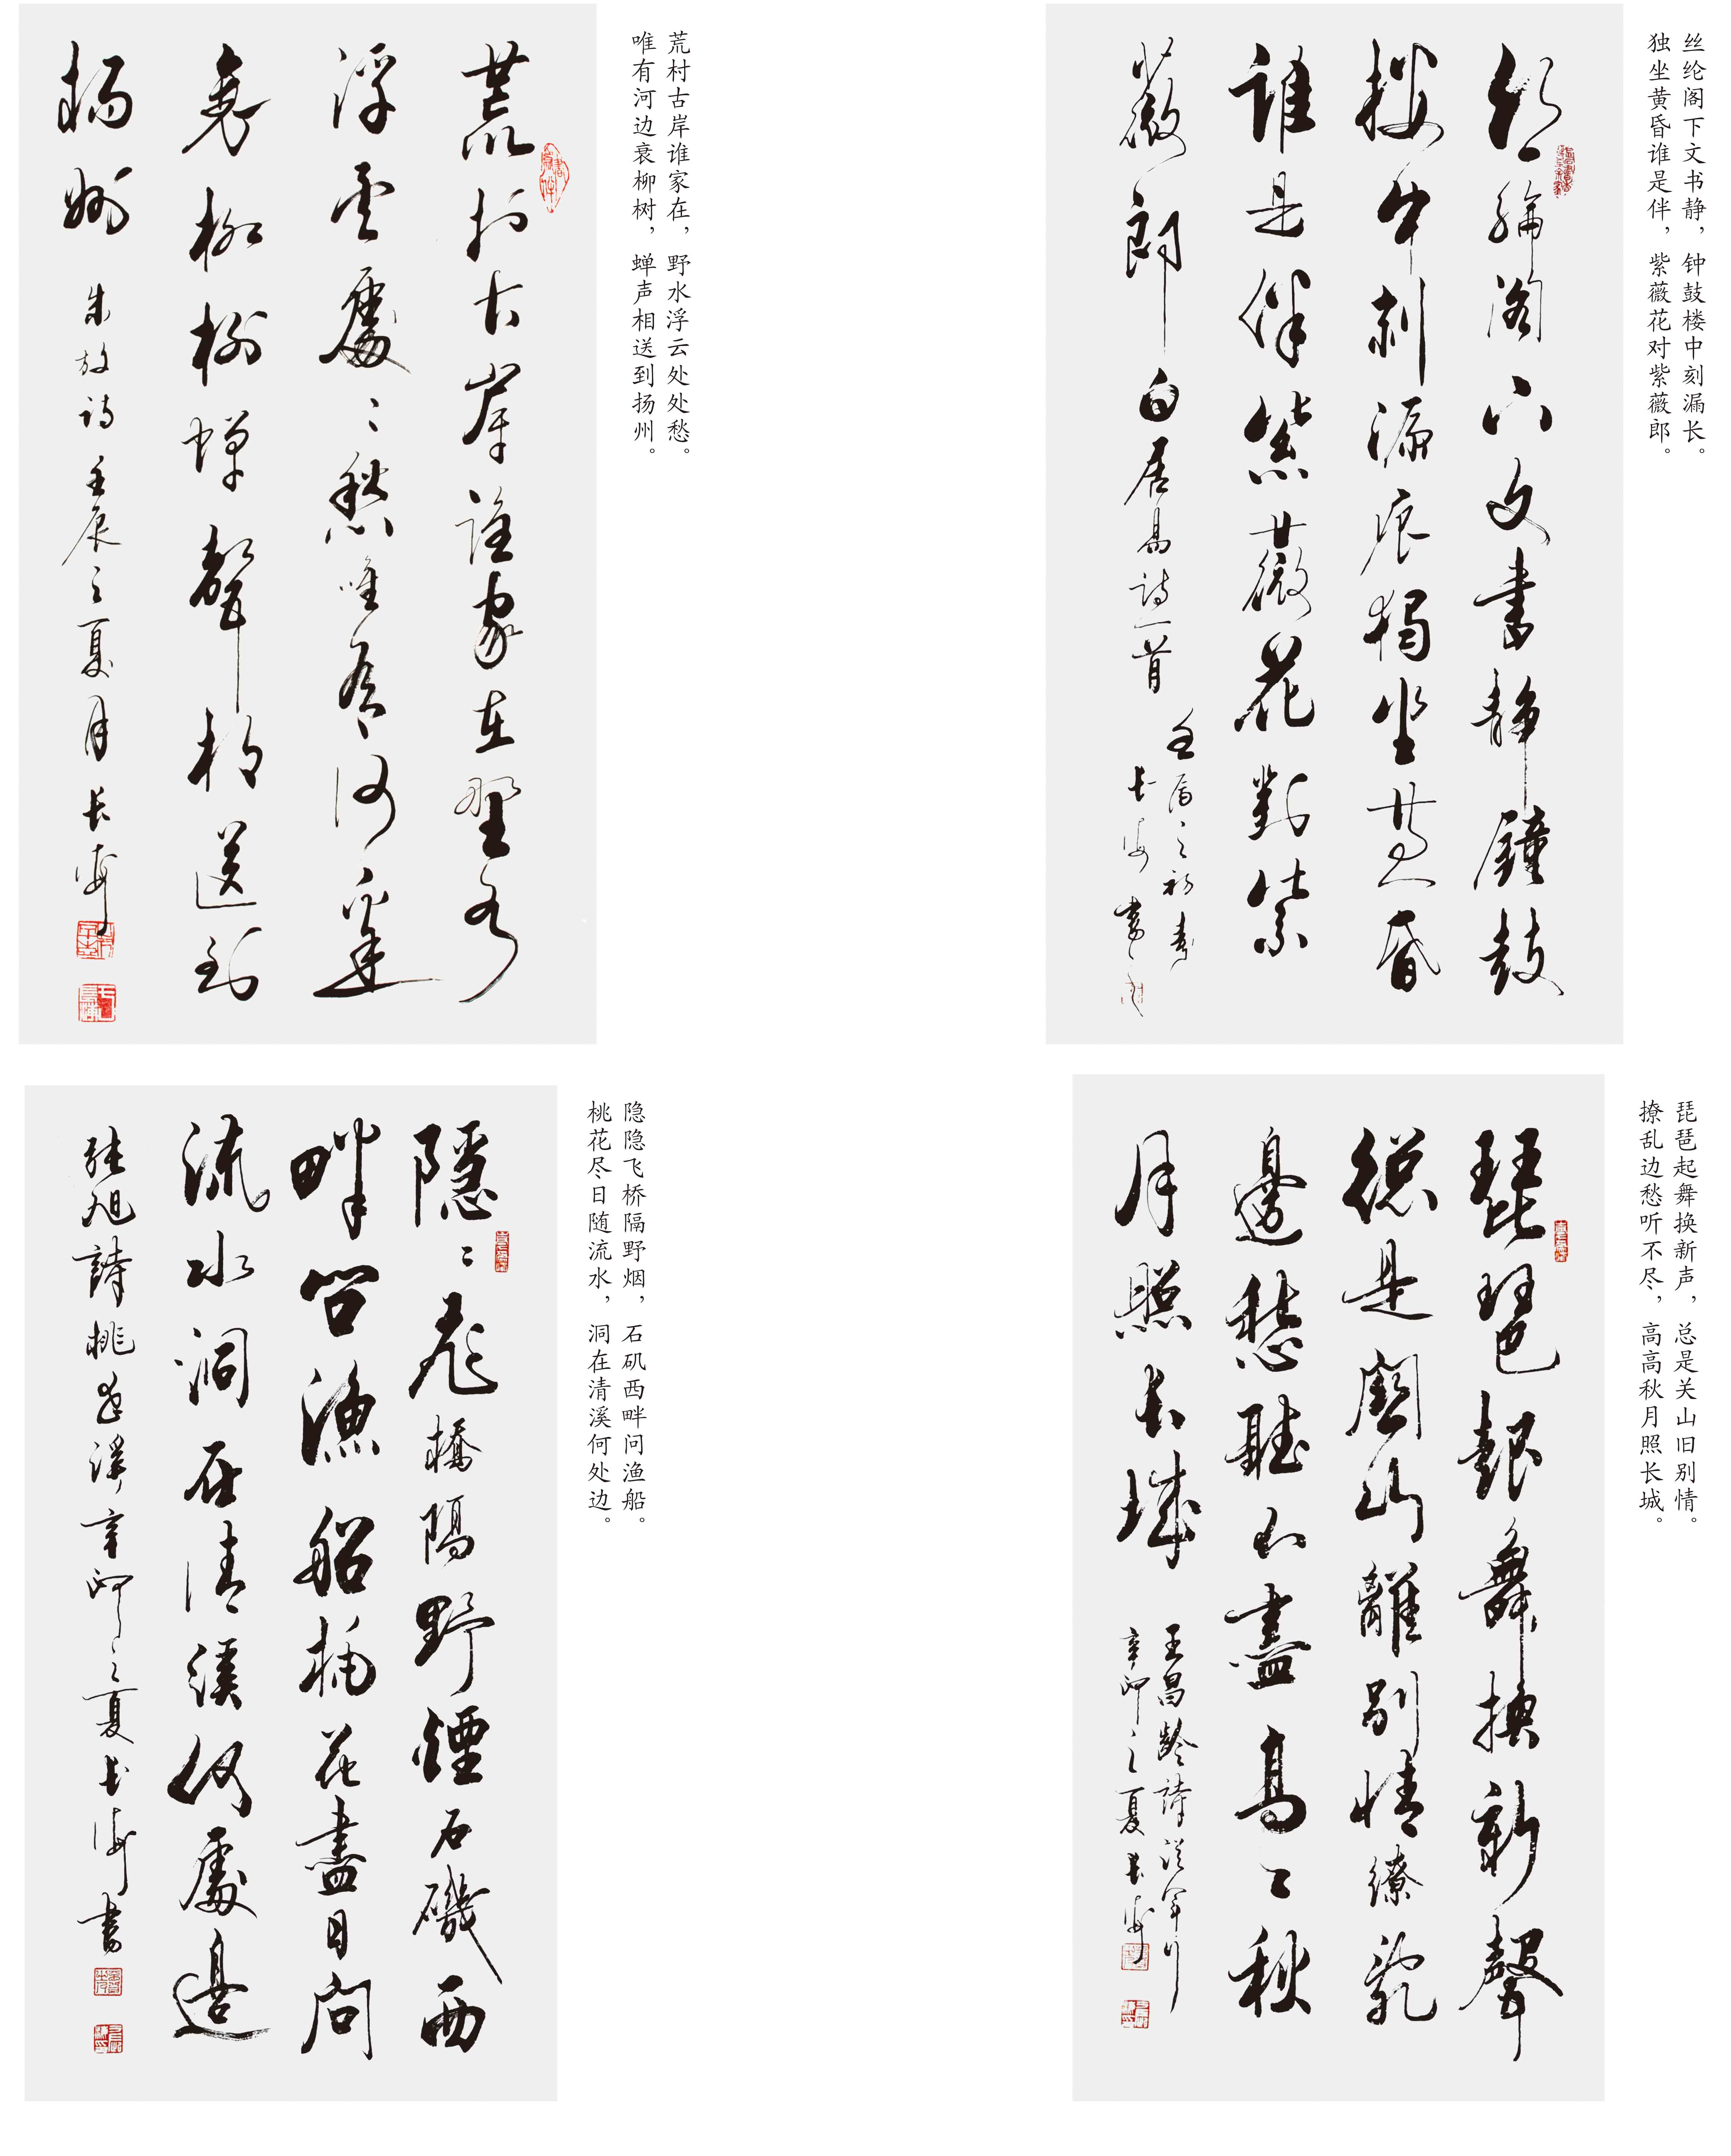 丝纶阁下文书静，钟鼓楼中刻漏长。
独坐黄昏谁是伴，紫薇花对紫薇郎。
絲綸閣下文書靜鐘鼓
樓中刻漏痕獨坐黃昏
誰是伴紫薇花對紫
薇郎 白居易詩一首
壬辰之初春
长海書
荒村古岸谁家在，野水浮云处处愁。
唯有河边衰柳树，蝉声相送到扬州。
荒村古岸誰家在野水
浮雲處々愁唯有河邊
衰柳樹蟬聲相送到
揚州 朱放詩 壬辰之夏月长海
琵琶起舞换新声，总是关山旧别情。
撩乱边愁听不尽，高高秋月照长城。
琵琶起舞換新聲
總是關山離別情繚亂
邊愁聽不盡高々秋
月照长城
王昌齡詩從軍行
辛卯之夏长海
隐隐飞桥隔野烟，石矶西畔问渔船。
桃花尽日随流水，洞在清溪何处边。
隱々飛橋隔野煙石磯西
畔问漁船桃花盡日问
流水洞在清溪何處邊
張旭詩桃花溪辛卯之夏长海書